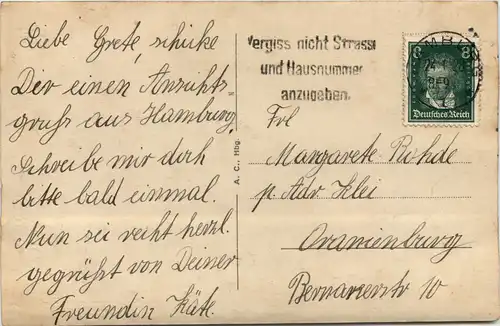 Liebe Grete, schicke
Dir einen Ansichts
gruss aus Hamburg,
schreibe mir doch
bitte bald einmal.
Nun sei recht herzl.
gegrüßt von Deiner
Freundin Käte.
A. C., Hbg.
Vergiss nicht Strasse
und Hausnummer
anzugeben.
8 8
Deutsches Reich
Frl
Margarete Rohde
p. Adr Klei
Oranienburg
Bernauerstr 10